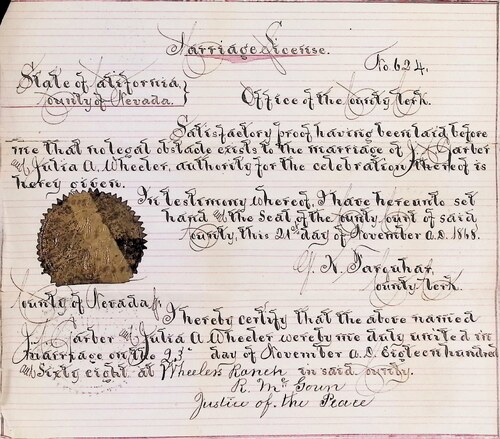 Marriage License.
No. 624.
State of California,
County of Nevada.
Office of the County Clerk.
Satisfactory proof having been laid before
me that no legal obstacle exists to the marriage of J. Garber
and Julia A. Wheeler, authority for the celebration thereof is
hereby given.
In testimony whereof, I have hereunto set
hand and the Seal of the County Court of said
County, this 21st day of November A.D. 1868.
N. Farquhar,
County Clerk.
County of Nevada
I hereby certify that the above named
J. Garber and Julia A. Wheeler were by me duly united in
marriage on the 23d day of November A.D. Eighteen hundred
and Sixty eight at Wheelers Ranch in said County.
R. McGoun
Justice of the Peace